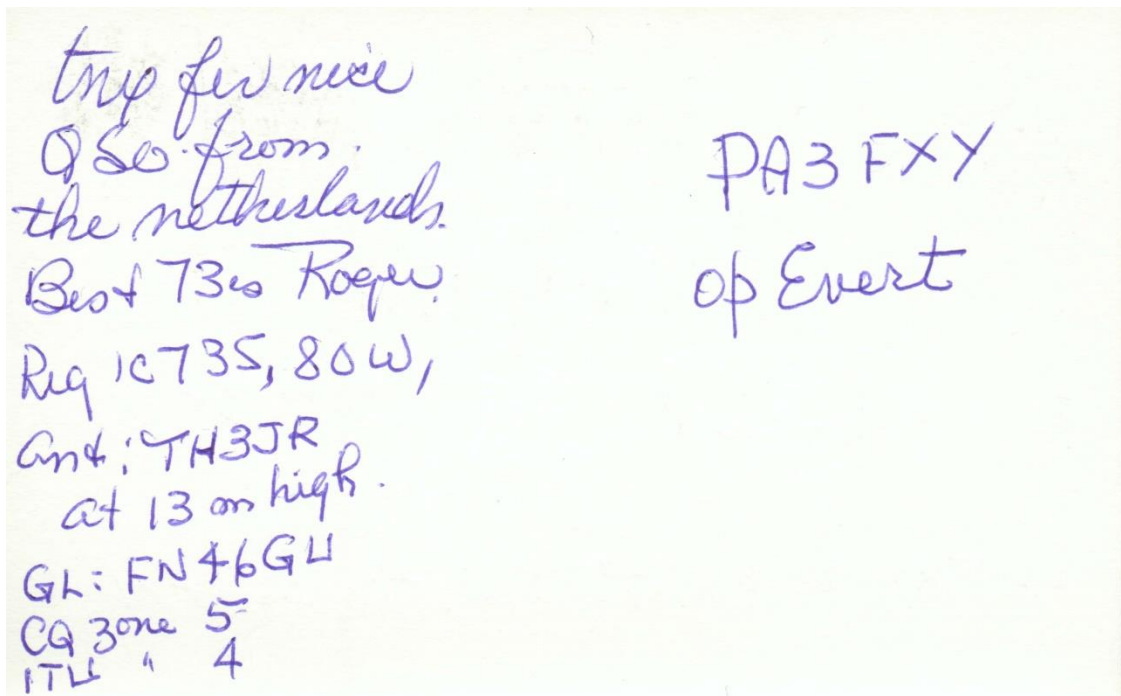 tnx fer nice
QSO from
the netherlands.
Best 73es Roger.
Rig IC735, 80W,
Ant: TH3JR
at 13 m high.
GL: FN46GU
CQ zone 5
ITU " 4
PA3FXY
op Evert